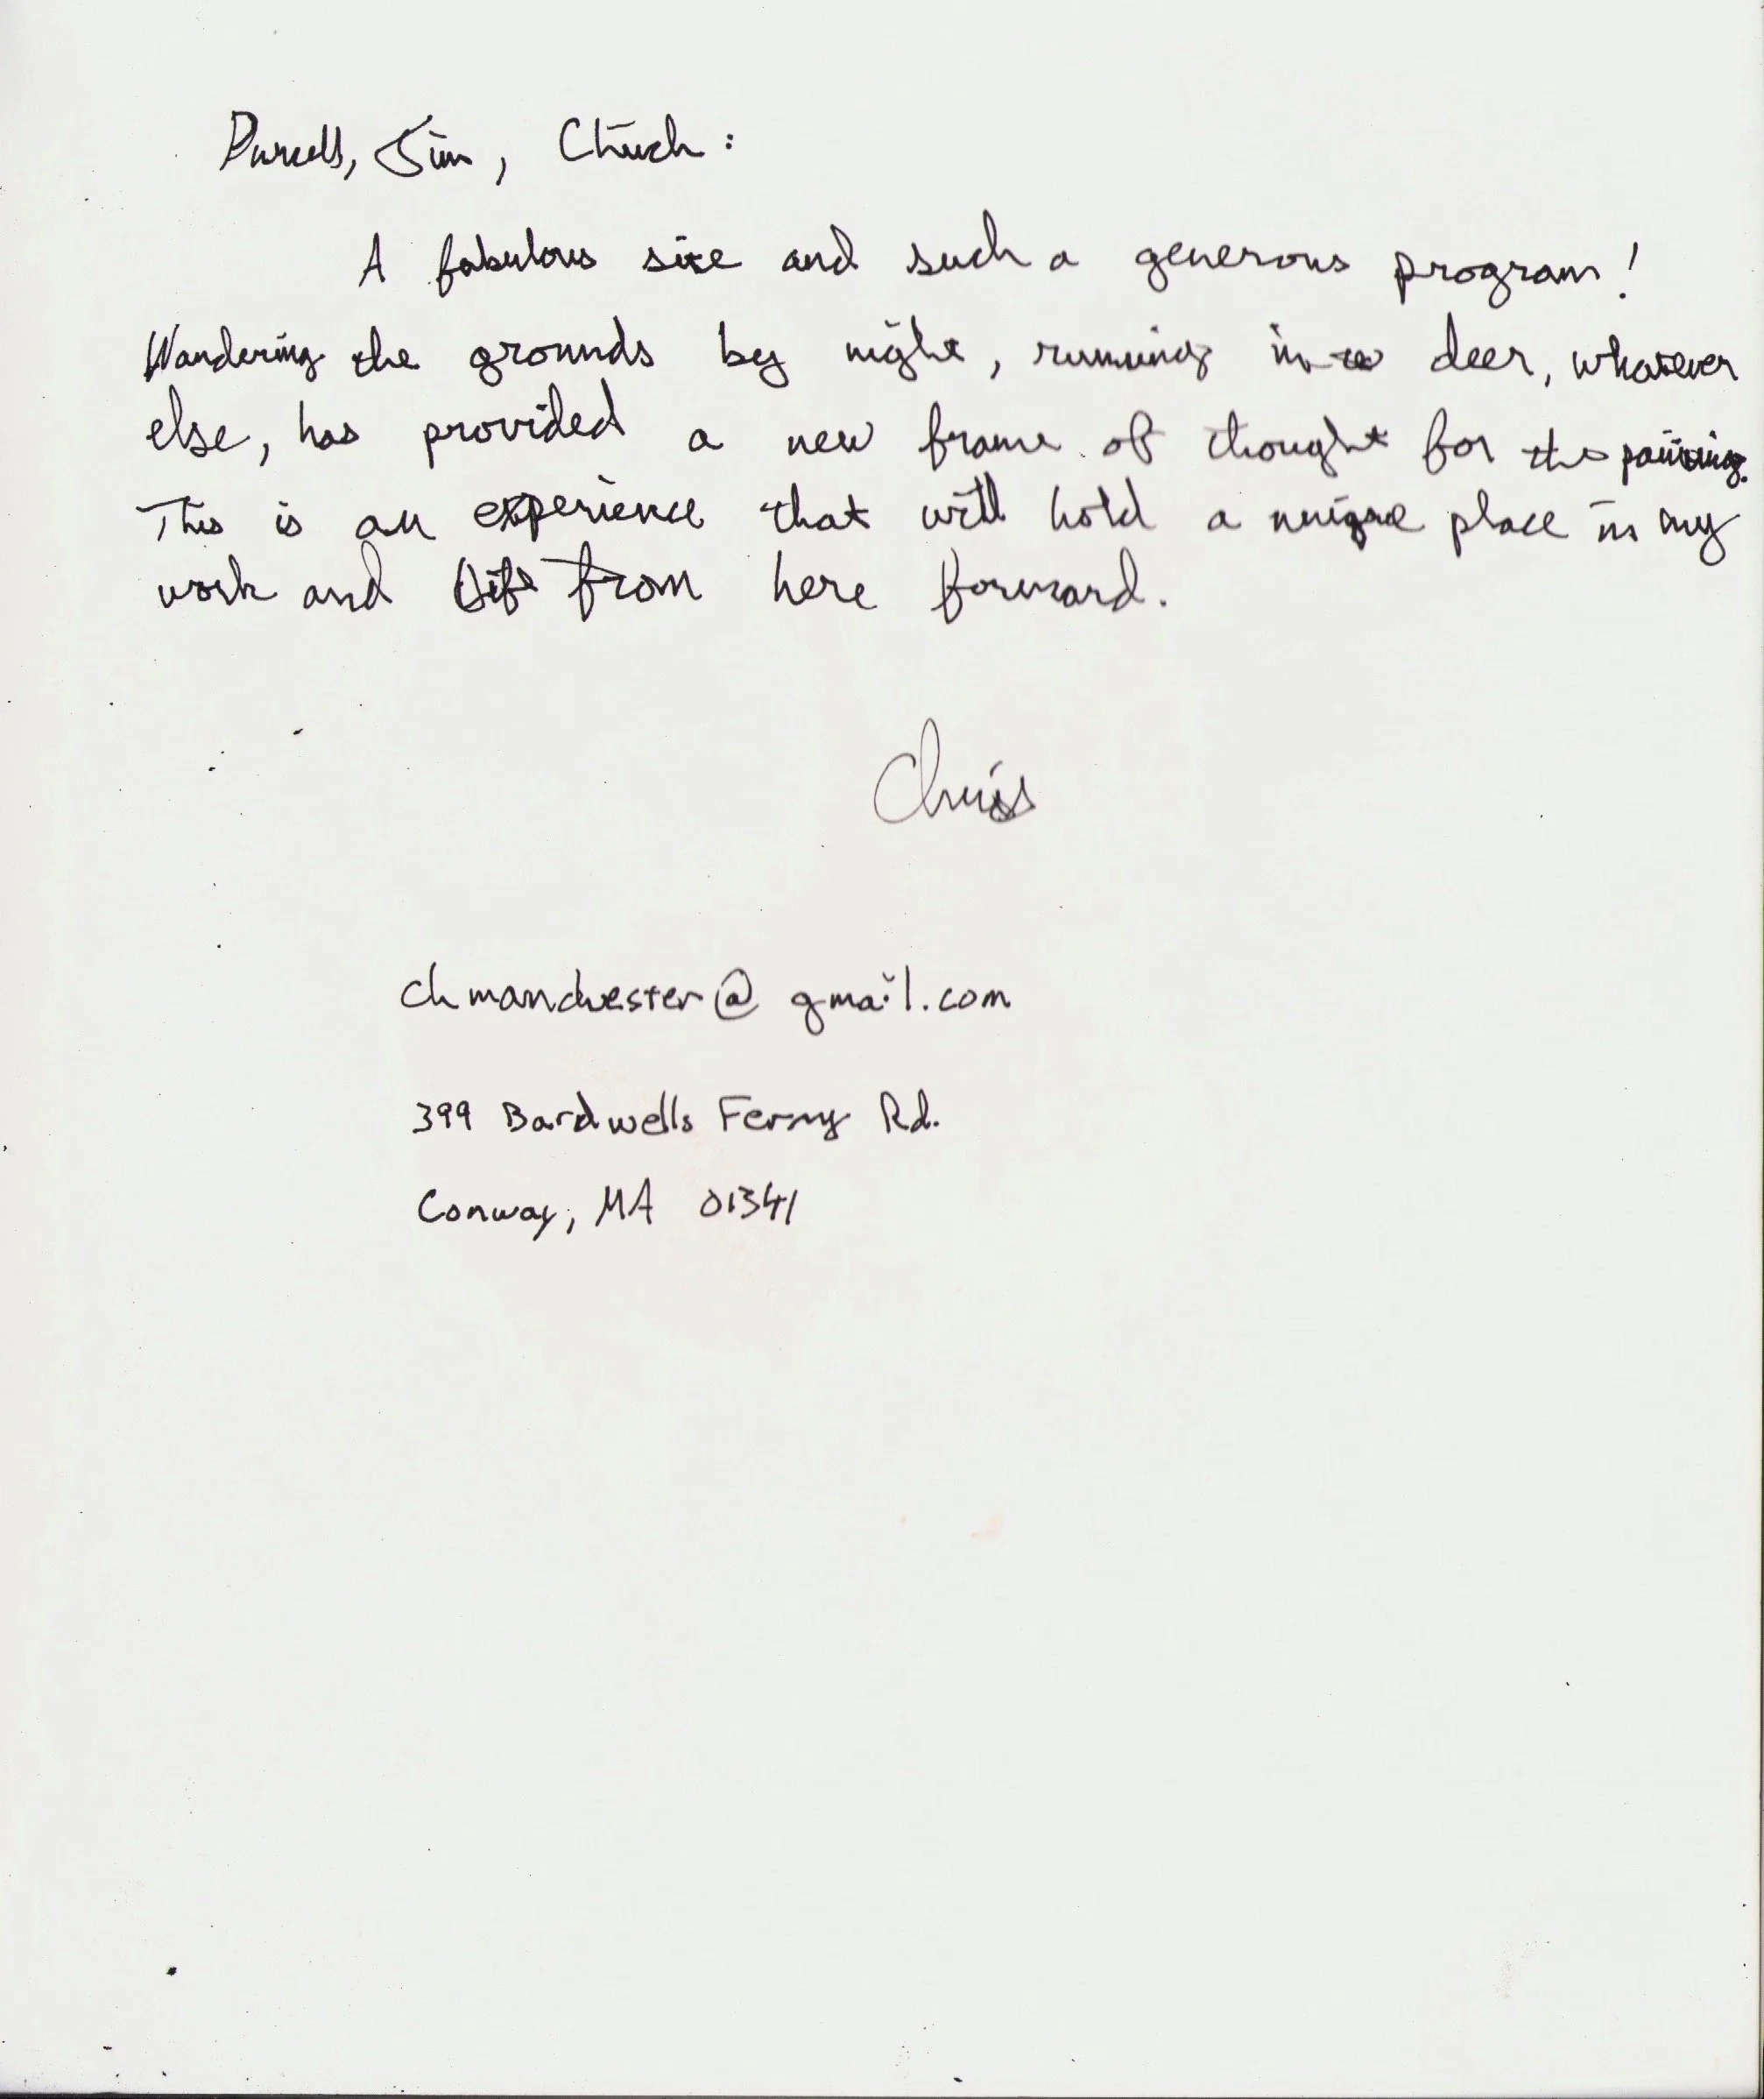 Purcell, Jim, Chuck:
A fabulous site and such a generous program!
Wandering the grounds by night, running into deer, whatever
else, has provided a new frame of thought for the painting.
This is an experience that will hold a unique place in my
work and life from here forward.
Chris
chmanchester@gmail.com
399 Bardwells Ferry Rd.
Conway, MA 01341